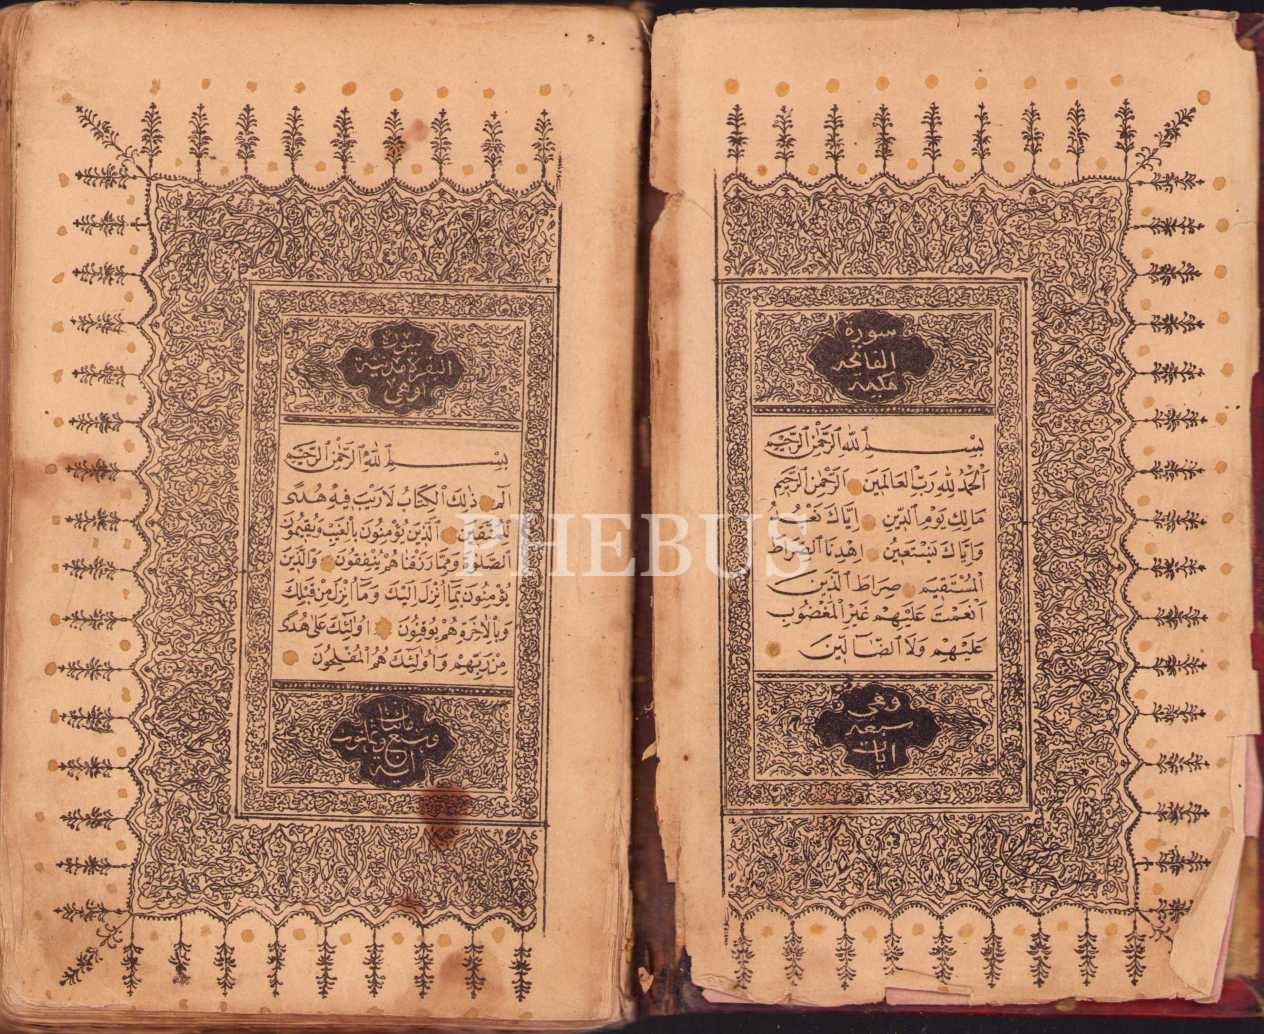 سورة
الفاتحة
مكية
بِسْمِ ٱللهِ ٱلرَّحْمٰنِ ٱلرَّحِيمِ
اَلْحَمْدُ لِلّٰهِ رَبِّ الْعَالَمِينَ اَلرَّحْمٰنِ الرَّحِيمِ
مَالِكِ يَوْمِ الدِّينِ اِيَّاكَ نَعْبُدُ
وَاِيَّاكَ نَسْتَعِينُ اِهْدِنَا الصِّرَاطَ
الْمُسْتَقِيمَ صِرَاطَ الَّذِينَ
اَنْعَمْتَ عَلَيْهِمْ غَيْرِ الْمَغْضُوبِ
عَلَيْهِمْ وَلَا الضَّالِّينَ
وهى
سبعة
ايات
سورة
البقرة مدنية
وهى
بِسْمِ ٱللهِ ٱلرَّحْمٰنِ ٱلرَّحِيمِ
الٓمٓ ذٰلِكَ الْكِتَابُ لَا رَيْبَ فِيهِ هُدًى
لِلْمُتَّقِينَ اَلَّذِينَ يُؤْمِنُونَ بِالْغَيْبِ وَيُقِيمُونَ
الصَّلٰوةَ وَمِمَّا رَزَقْنَاهُمْ يُنْفِقُونَ وَالَّذِينَ
يُؤْمِنُونَ بِمَٓا اُنْزِلَ اِلَيْكَ وَمَٓا اُنْزِلَ مِنْ قَبْلِكَ
وَبِالْاٰخِرَةِ هُمْ يُوقِنُونَ اُولٰٓئِكَ عَلٰى هُدًى
مِنْ رَبِّهِمْ وَاُولٰٓئِكَ هُمُ الْمُفْلِحُونَ
مائتان
وسبع وثمانون
اية
PHEBUS